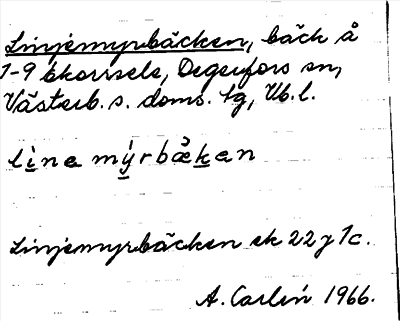 Linjemyrbäcken, bäck å
1-9 Ekorrsele, Degerfors sn,
Västerb. s. doms. tg, Vb. l.
lìne mýrbæken
Linjemyrbäcken ek 22 j 1c.
A. Carlin 1966.